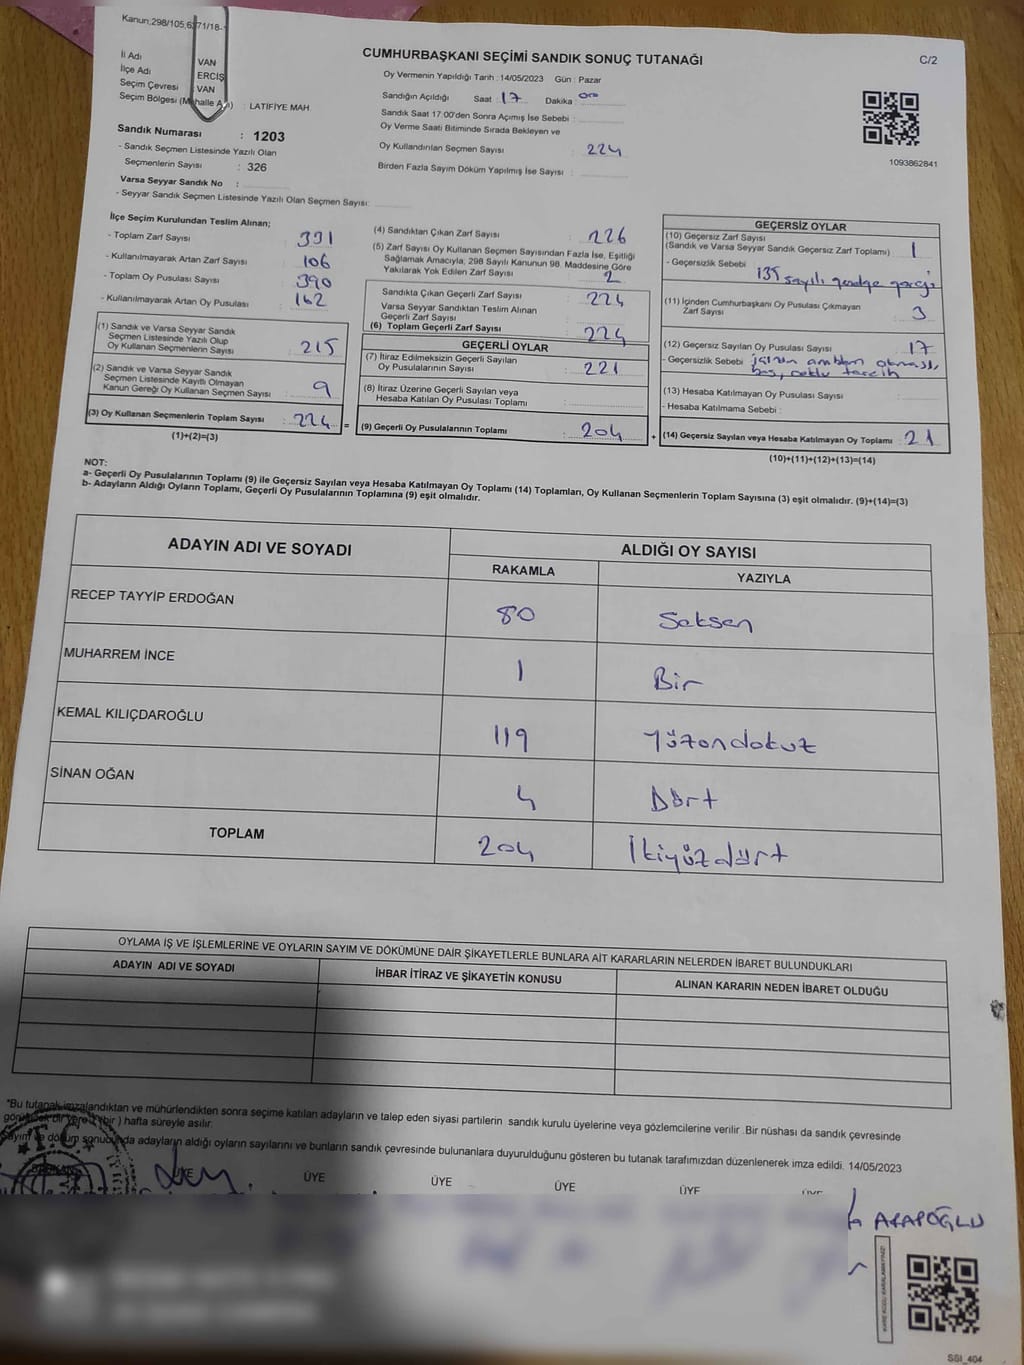 Kanun;298/105,6271/18-1
CUMHURBAŞKANI SEÇİMİ SANDIK SONUÇ TUTANAĞI
C/2
İl Adı : VAN
İlçe Adı : ERCİŞ
Seçim Çevresi : VAN
Seçim Bölgesi (Mahalle Adı) : LATİFİYE MAH.
Sandık Numarası : 1203
- Sandık Seçmen Listesinde Yazılı Olan
Seçmenlerin Sayısı : 326
Varsa Seyyar Sandık No :
- Seyyar Sandık Seçmen Listesinde Yazılı Olan Seçmen Sayısı:
Oy Vermenin Yapıldığı Tarih : 14/05/2023 Gün : Pazar
Sandığın Açıldığı Saat : 17 Dakika :
Sandık Saat 17:00'den Sonra Açımış İse Sebebi :
Oy Verme Saati Bitiminde Sırada Bekleyen ve
Oy Kullandırılan Seçmen Sayısı : 224
Birden Fazla Sayım Döküm Yapılmış İse Sayısı :
1093862841
İlçe Seçim Kurulundan Teslim Alınan;
- Toplam Zarf Sayısı : 331
- Kullanılmayarak Artan Zarf Sayısı : 106
- Toplam Oy Pusulası Sayısı : 390
- Kullanılmayarak Artan Oy Pusulası : 162
(1) Sandık ve Varsa Seyyar Sandık
Seçmen Listesinde Yazılı Olup
Oy Kullanan Seçmenlerin Sayısı : 215
(2) Sandık ve Varsa Seyyar Sandık
Seçmen Listesinde Kayıtlı Olmayan
Kanun Gereği Oy Kullanan Seçmen Sayısı : 9
(3) Oy Kullanan Seçmenlerin Toplam Sayısı : 224 =
(1)+(2)=(3)
(4) Sandıktan Çıkan Zarf Sayısı : 226
(5) Zarf Sayısı Oy Kullanan Seçmen Sayısından Fazla İse, Eşitliği
Sağlamak Amacıyla; 298 Sayılı Kanunun 98. Maddesine Göre
Yakılarak Yok Edilen Zarf Sayısı : 2
Sandıkta Çıkan Geçerli Zarf Sayısı : 224
Varsa Seyyar Sandıktan Teslim Alınan
Geçerli Zarf Sayısı :
(6) Toplam Geçerli Zarf Sayısı : 224
GEÇERLİ OYLAR
(7) İtiraz Edilmeksizin Geçerli Sayılan
Oy Pusulalarının Sayısı : 221
(8) İtiraz Üzerine Geçerli Sayılan veya
Hesaba Katılan Oy Pusulası Toplamı :
(9) Geçerli Oy Pusulalarının Toplamı : 204 +
GEÇERSİZ OYLAR
(10) Geçersiz Zarf Sayısı
(Sandık ve Varsa Seyyar Sandık Geçersiz Zarf Toplamı) : 1
- Geçersizlik Sebebi : 135 sayılı genelge gereği
(11) İçinden Cumhurbaşkanı Oy Pusulası Çıkmayan
Zarf Sayısı : 3
(12) Geçersiz Sayılan Oy Pusulası Sayısı : 17
- Geçersizlik Sebebi : amblem olmaması,
boş, çoklu tercih
(13) Hesaba Katılmayan Oy Pusulası Sayısı :
- Hesaba Katılmama Sebebi :
(14) Geçersiz Sayılan veya Hesaba Katılmayan Oy Toplamı : 21
(10)+(11)+(12)+(13)=(14)
NOT:
a- Geçerli Oy Pusulalarının Toplamı (9) ile Geçersiz Sayılan veya Hesaba Katılmayan Oy Toplamı (14) Toplamları, Oy Kullanan Seçmenlerin Toplam Sayısına (3) eşit olmalıdır. (9)+(14)=(3)
b- Adayların Aldığı Oyların Toplamı, Geçerli Oy Pusulalarının Toplamına (9) eşit olmalıdır.
ADAYIN ADI VE SOYADI
ALDIĞI OY SAYISI
RAKAMLA YAZIYLA
RECEP TAYYİP ERDOĞAN 80 Seksen
MUHARREM İNCE 1 Bir
KEMAL KILIÇDAROĞLU 119 Yüzondokuz
SİNAN OĞAN 4 Dört
TOPLAM 204 İkiyüzdört
OYLAMA İŞ VE İŞLEMLERİNE VE OYLARIN SAYIM VE DÖKÜMÜNE DAİR ŞİKAYETLERLE BUNLARA AİT KARARLARIN NELERDEN İBARET BULUNDUKLARI
ADAYIN ADI VE SOYADI İHBAR İTİRAZ VE ŞİKAYETİN KONUSU ALINAN KARARIN NEDEN İBARET OLDUĞU
"Bu tutanak imzalandıktan ve mühürlendikten sonra seçime katılan adayların ve talep eden siyasi partilerin sandık kurulu üyelerine veya gözlemcilerine verilir .Bir nüshası da sandık çevresinde
görülecek bir yere 1(bir ) hafta süreyle asılır.
Sayım ve döküm sonucunda adayların aldığı oyların sayılarını ve bunların sandık çevresinde bulunanlara duyurulduğunu gösteren bu tutanak tarafımızdan düzenlenerek imza edildi. 14/05/2023
T.C.
BAŞKAN ÜYE ÜYE ÜYE ÜYE ÜYE ÜYE
ARAPOĞLU
SSİ_404